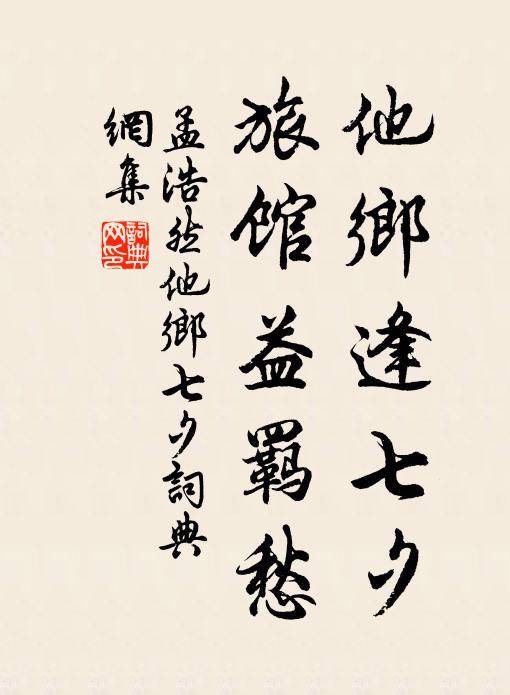 他鄉逢七夕
旅館益羈愁
孟浩然他鄉七夕詞典
網集
詞典網印